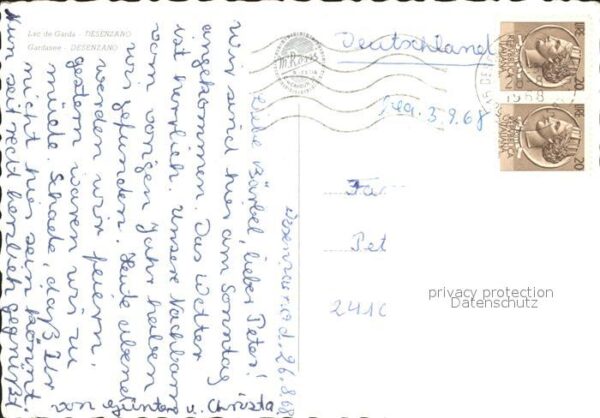 Lac de Garda - DESENZANO
Gardasee - DESENZANO
Desenzano d. 26.8.68
Liebe Bärbel, lieber Peter!
Wir sind hier am Sonntag
angekommen. Das Wetter
ist herrlich. Unsere Nachbarn
vom vorigen Jahr haben
wir gefunden. Heute abend
werden wir feiern.
gestern waren wir zu
müde. Schade, daß Ihr
nicht hier sein könnt
Nun seid recht herzlich gegrüßt
von Günter u. Christa
Deutschland
3.9.68
1968
REPUBBLICA
ITALIANA
20
REPUBBLICA
ITALIANA
20
Fam
Pet
2410
privacy protection
Datenschutz